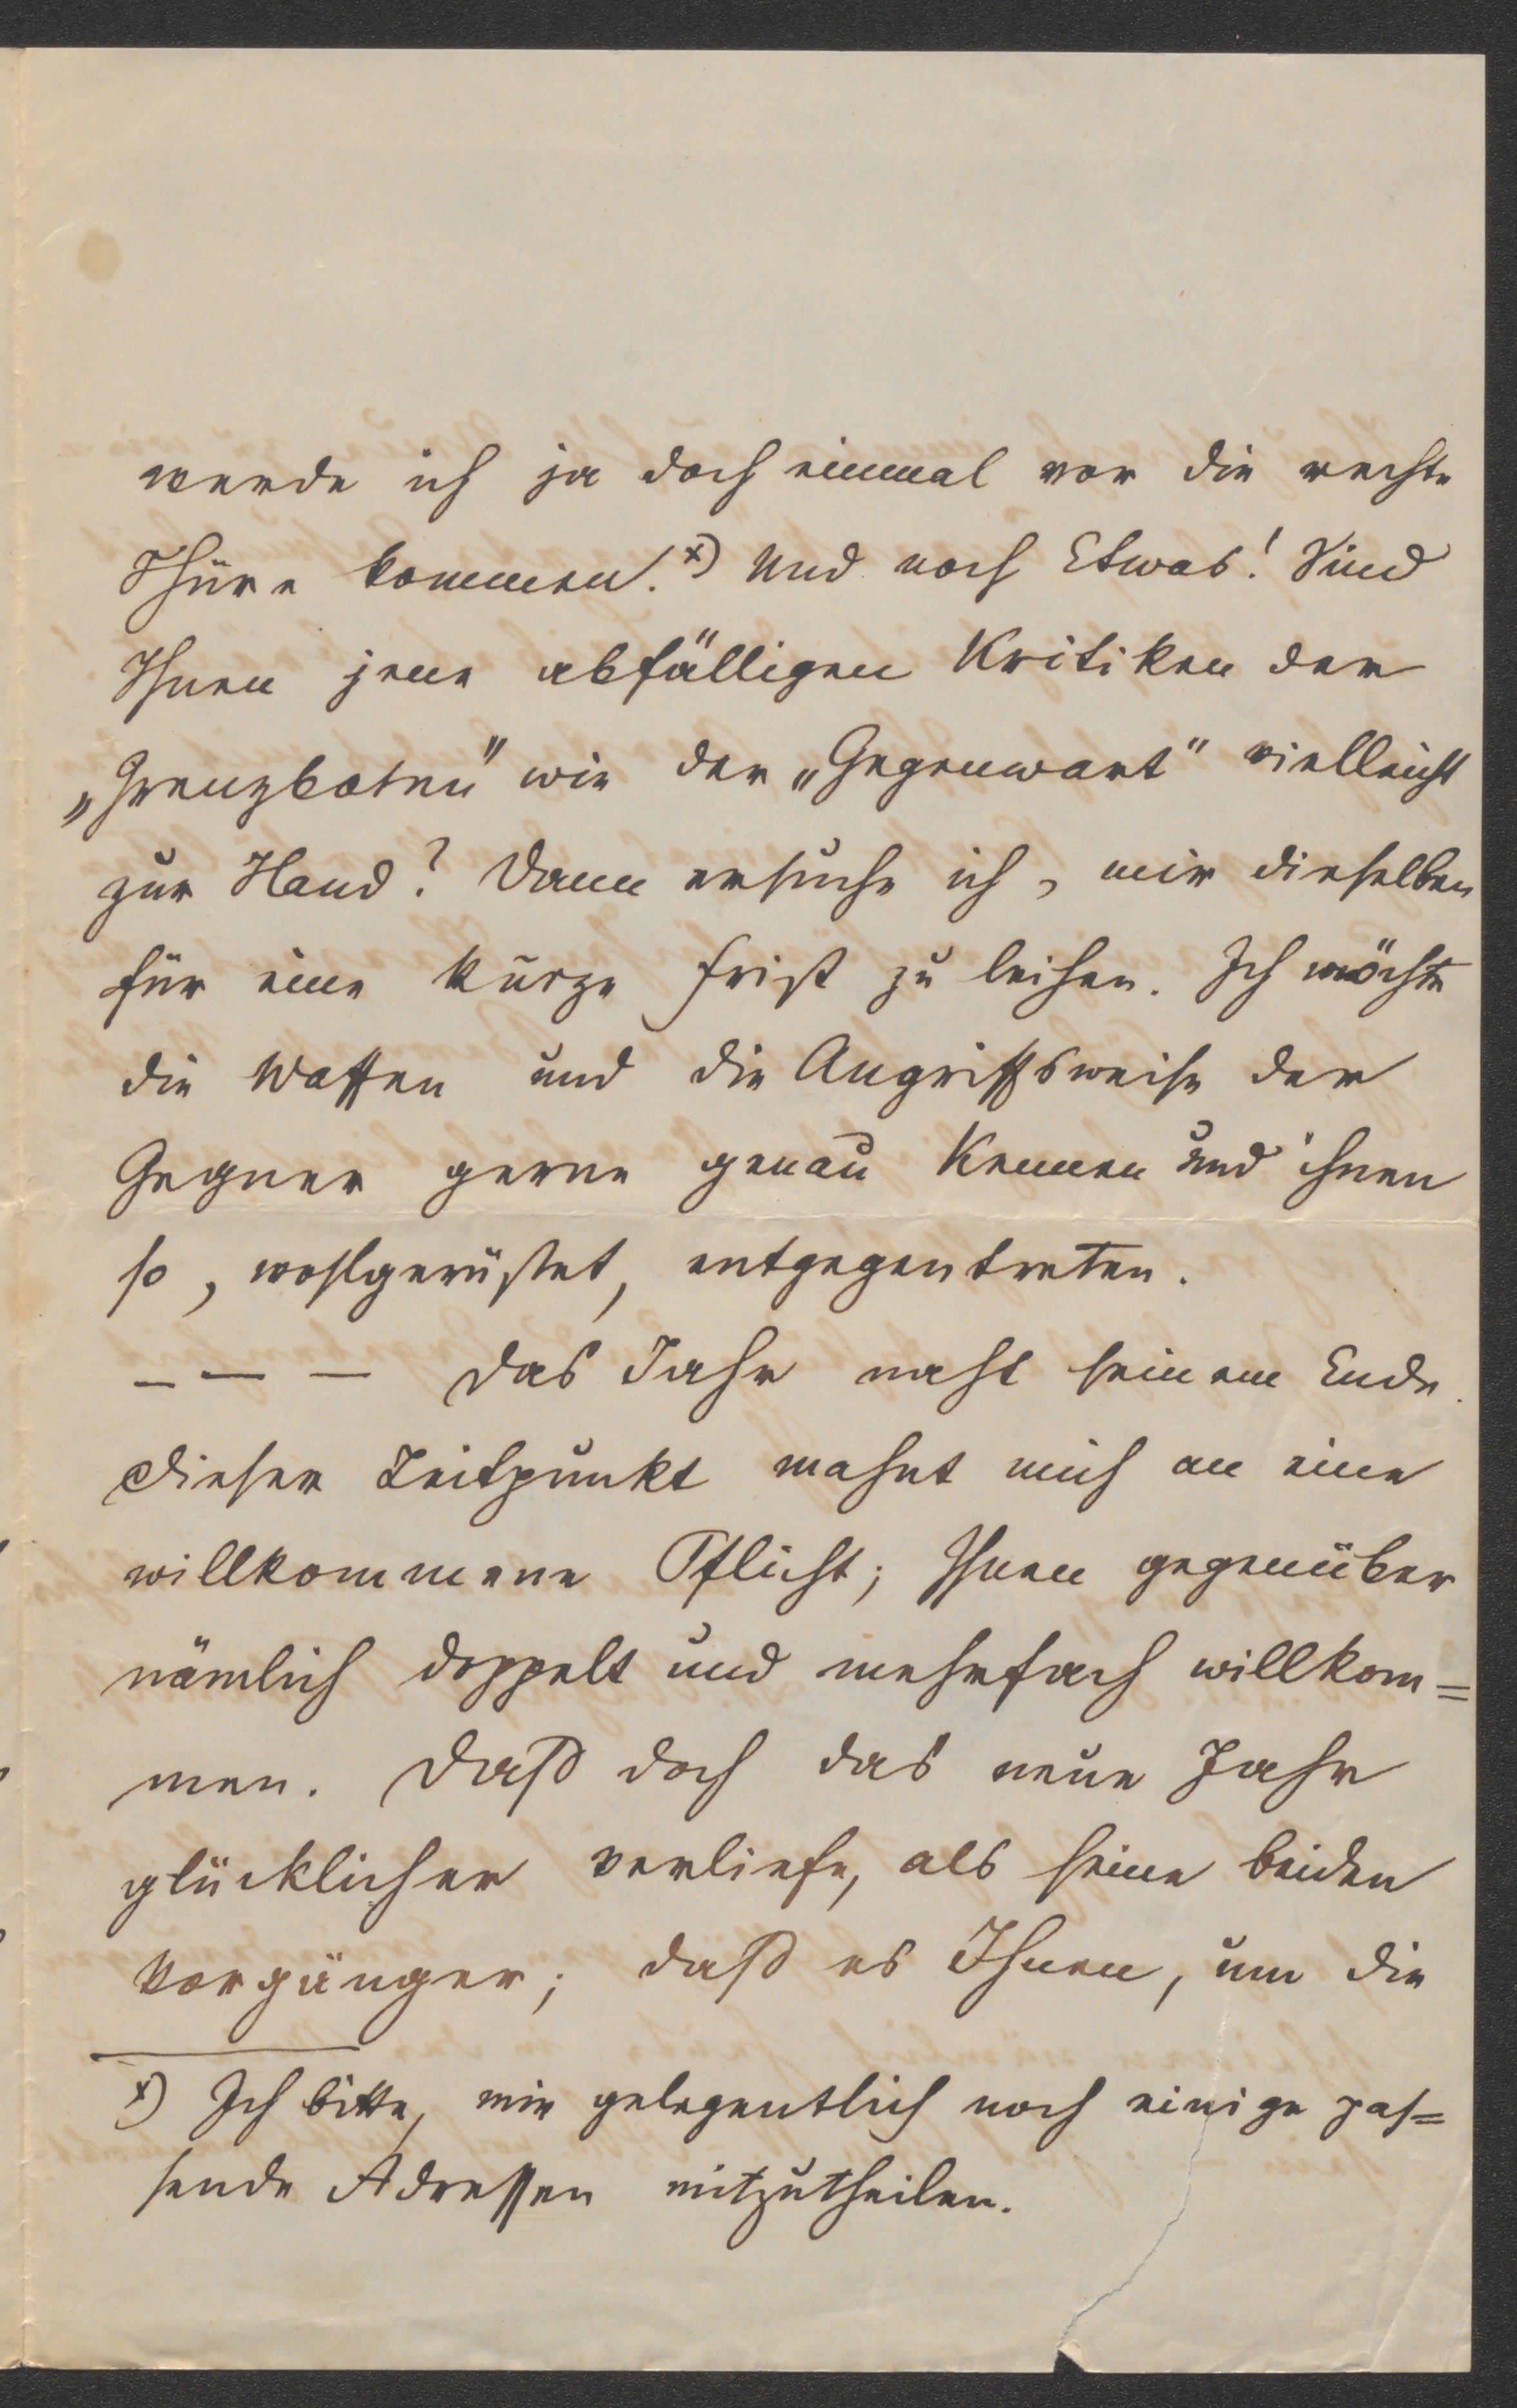 werde ich ja doch einmal vor die rechte
Thüre kommen.*) Und noch Etwas! Sind
Ihnen jene abfälligen Kritiken der
„Grenzboten“ wie der „Gegenwart“ vielleicht
zur Hand? Dann ersuche ich, mir dieselben
für eine kurze Frist zu leihen. Ich möchte
die Waffen und die Angriffsweise der
Gegner gerne genau kennen und ihnen
so, wohlgerüstet, entgegentreten.
– – – Das Jahr naht seinem Ende.
Dieser Zeitpunkt mahnt mich an eine
willkommene Pflicht; Ihnen gegenüber
nämlich doppelt und mehrfach willkom=
men. Daß doch das neue Jahr
glücklicher verliefe, als seine beiden
Vorgänger; daß es Ihnen, um die
*) Ich bitte, mir gelegentlich noch einige pas=
sende Adressen mitzutheilen.